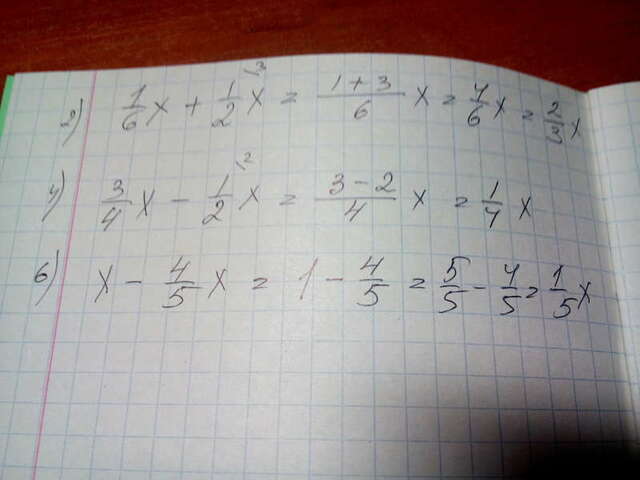 2) 1/6 x + 1/2 \3 x = (1+3)/6 x = 4/6 x = 2/3 x
4) 3/4 x - 1/2 \2 x = (3-2)/4 x = 1/4 x
6) x - 4/5 x = 1 - 4/5 = 5/5 - 4/5 = 1/5 x